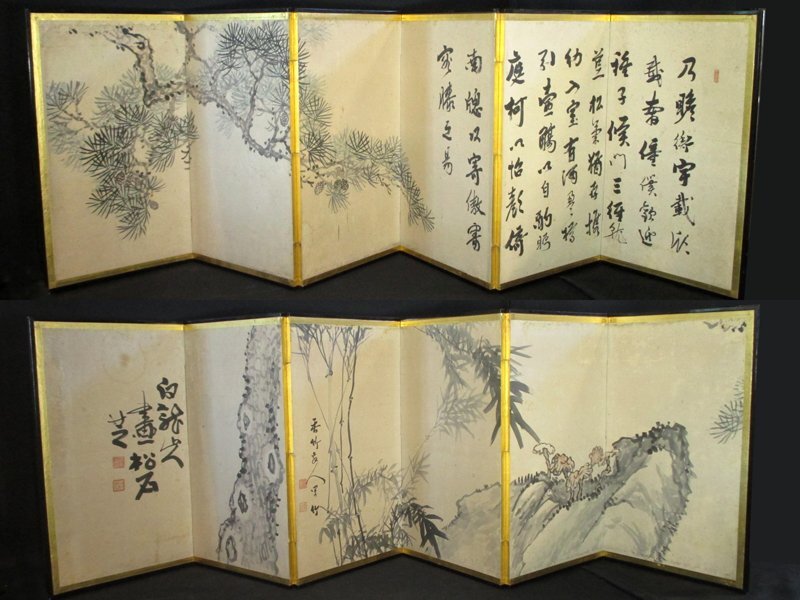 乃瞻衡宇載欣
載奔僮僕歡迎
稚子候門三徑就
荒松菊猶存攜
幼入室有酒盈樽
引壺觴以自酌眄
庭柯以怡顏倚
南牕以寄傲審
容膝之易
香竹人写竹
白龍山人
畫松石